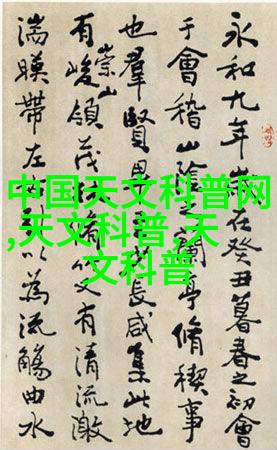 永和九年歲在癸丑暮春之初會
于會稽山陰之蘭亭脩稧事
也羣賢畢長咸集此地
有崇山峻領茂林脩竹又有清流激
湍暎帶左以為流觴曲水
中国天文科普网
,天文科普,天
文科普